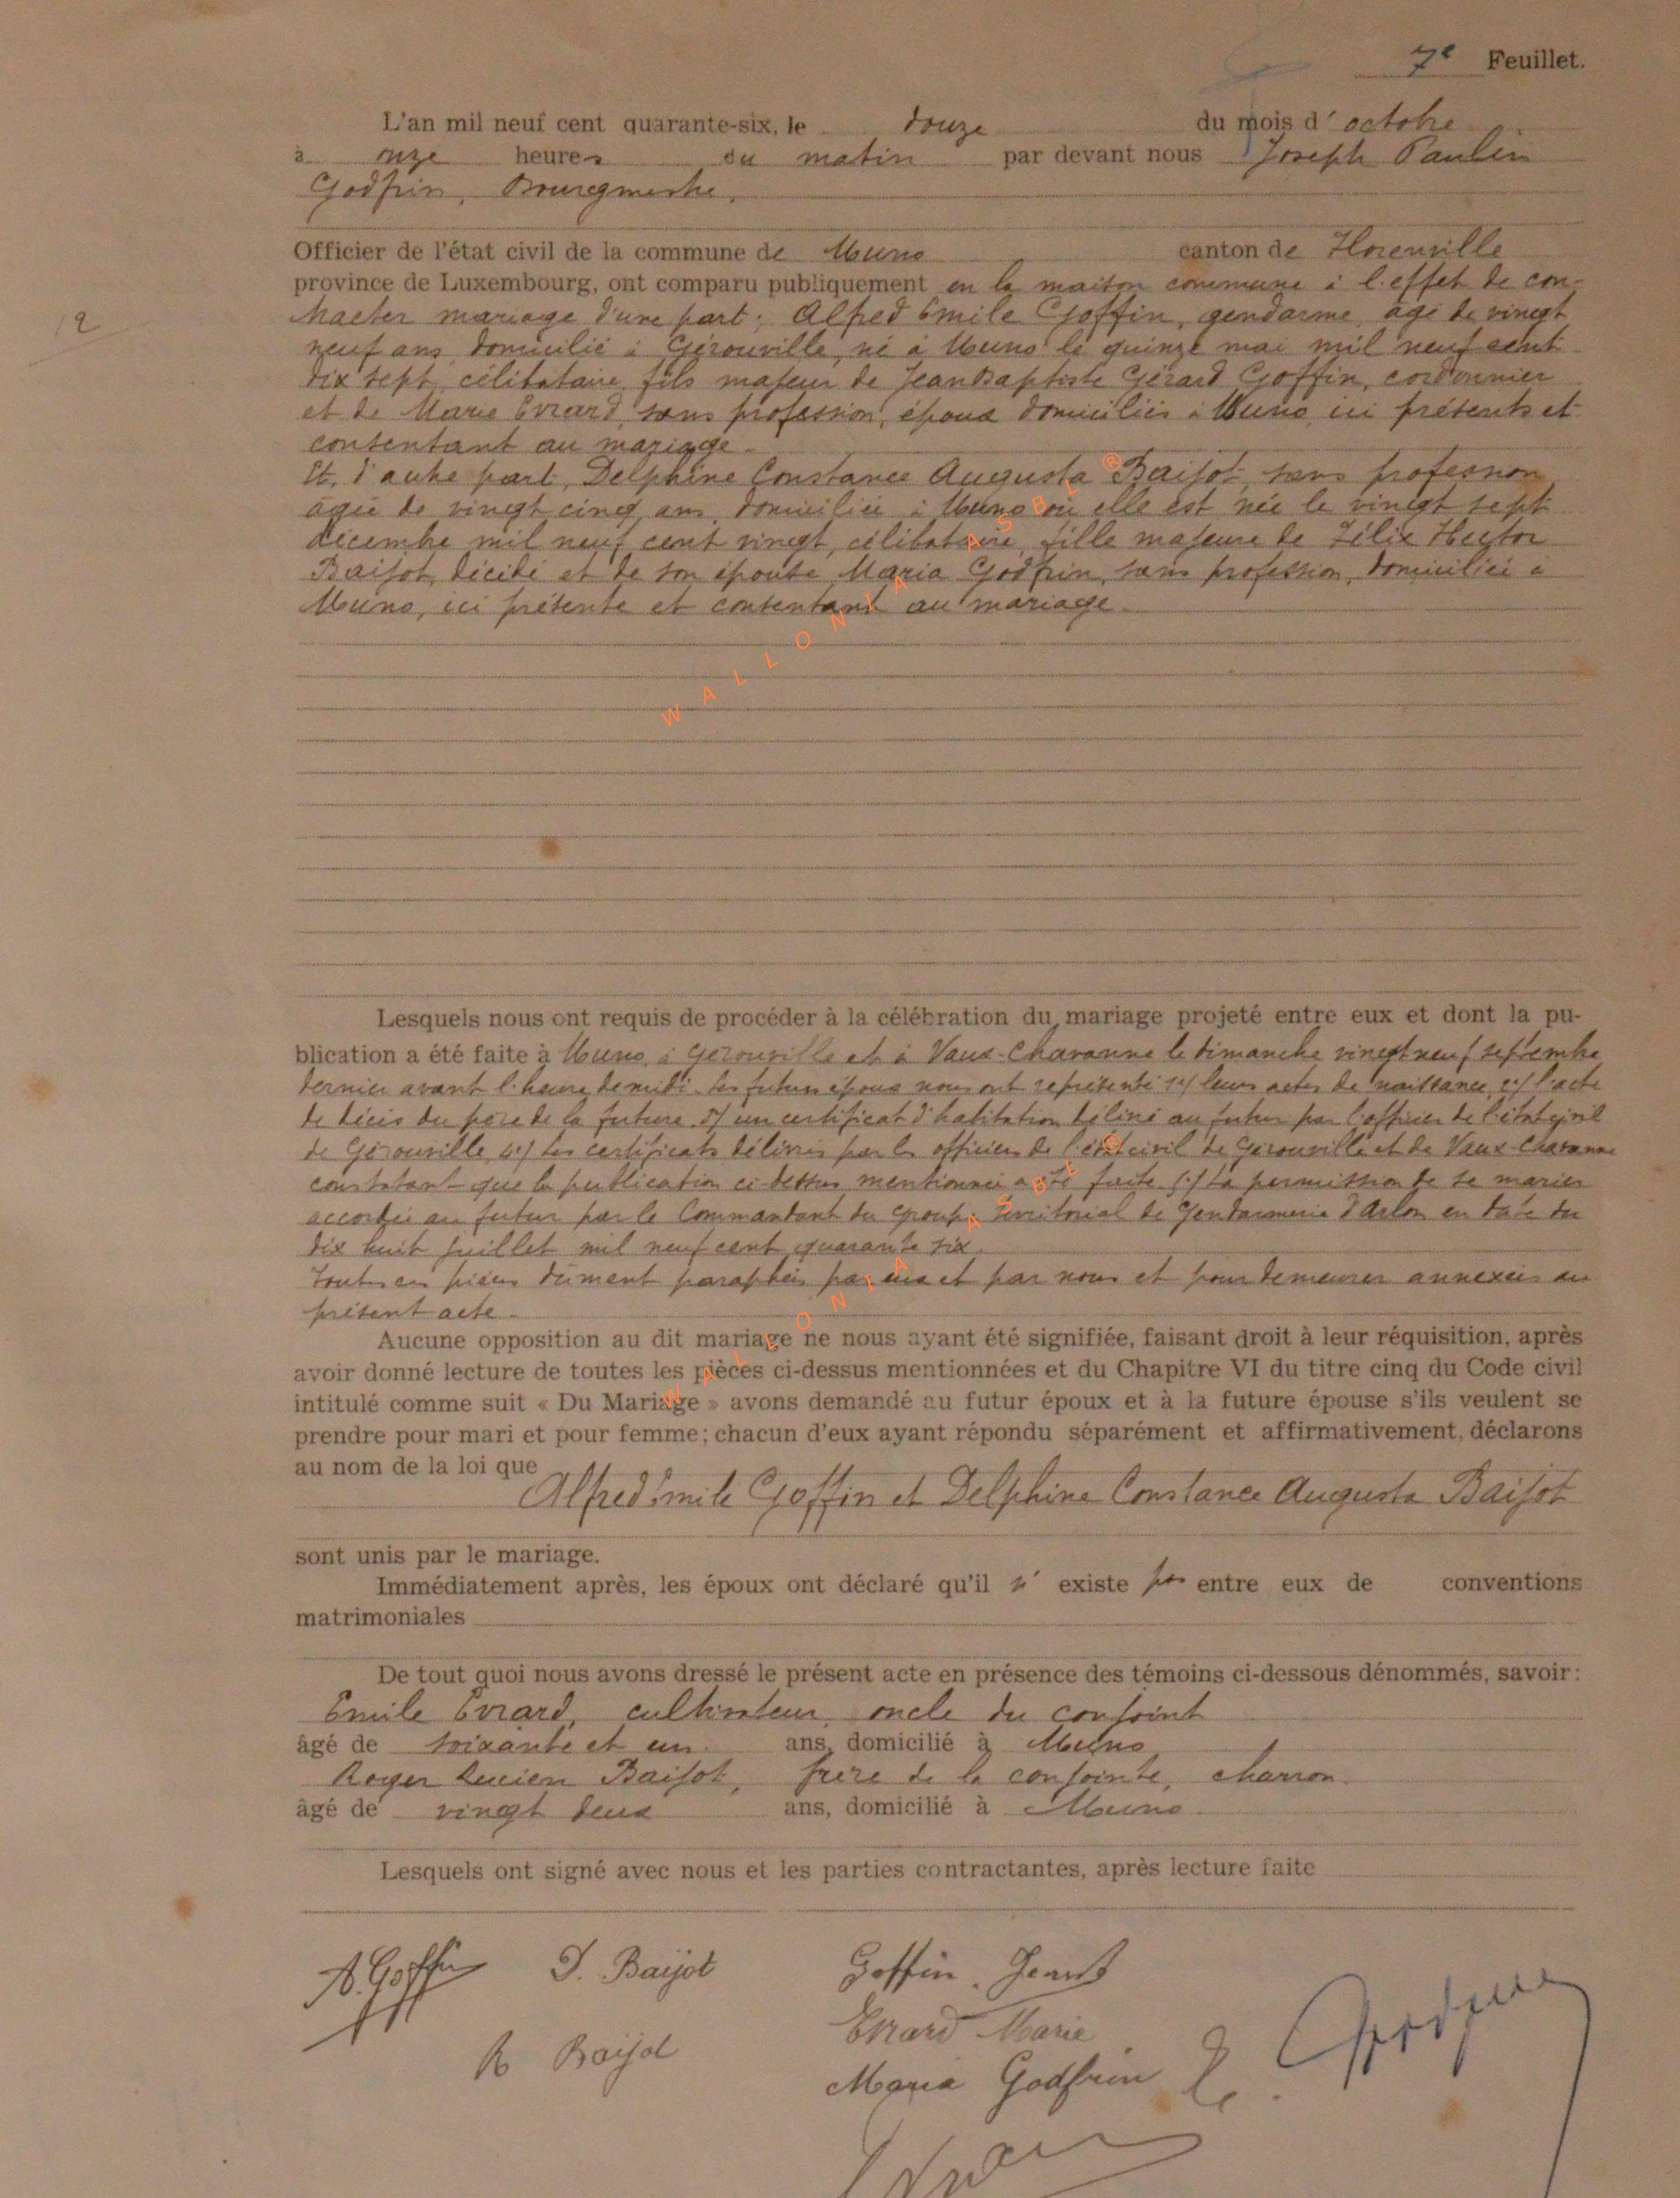 7e Feuillet.
12
L'an mil neuf cent quarante-six, le douze du mois d'octobre
à onze heures du matin par devant nous Joseph Paulin
Godfrin, Bourgmestre,
Officier de l'état civil de la commune de Muno canton de Florenville
province de Luxembourg, ont comparu publiquement en la maison commune à l'effet de con-
tracter mariage d'une part: Alfred Emile Goffin, gendarme, âgé de vingt
neuf ans, domicilié à Gérouville, né à Muno le quinze mai mil neuf cent
dix sept, célibataire, fils majeur de Jean Baptiste Gérard Goffin, cordonnier
et de Marie Evrard, sans profession, époux domiciliés à Muno, ici présents et
consentant au mariage.
Et, d'autre part, Delphine Constance Augusta Baijot, sans profession
âgée de vingt cinq ans, domiciliée à Muno où elle est née le vingt sept
décembre mil neuf cent vingt, célibataire, fille majeure de Félix Hector
Baijot, décédé et de son épouse Maria Godfrin, sans profession, domiciliée à
Muno, ici présente et consentant au mariage.
WALLONIA ASBL ®
Lesquels nous ont requis de procéder à la célébration du mariage projeté entre eux et dont la pu-
blication a été faite à Muno, à Gérouville et à Vaux-Chavanne le dimanche vingt neuf septembre
dernier avant l'heure de midi. Les futurs époux nous ont représenté 1°/ leurs actes de naissance, 2°/ l'acte
de décès du père de la future. 3°/ un certificat d'habitation délivré au futur par l'officier de l'état civil
de Gérouville, 4°/ les certificats délivrés par les officiers de l'état civil de Gérouville et de Vaux-Chavanne
constatant que la publication ci-dessus mentionnée a été faite 5°/ la permission de se marier
accordée au futur par le Commandant du Groupe territorial de Gendarmerie d'Arlon en date du
dix huit juillet mil neuf cent quarante six.
Toutes ces pièces dûment paraphées par eux et par nous et pour demeurer annexées au
présent acte.
WALLONIA ASBL ®
Aucune opposition au dit mariage ne nous ayant été signifiée, faisant droit à leur réquisition, après
avoir donné lecture de toutes les pièces ci-dessus mentionnées et du Chapitre VI du titre cinq du Code civil
intitulé comme suit « Du Mariage » avons demandé au futur époux et à la future épouse s'ils veulent se
prendre pour mari et pour femme; chacun d'eux ayant répondu séparément et affirmativement, déclarons
au nom de la loi que
Alfred Emile Goffin et Delphine Constance Augusta Baijot
sont unis par le mariage.
Immédiatement après, les époux ont déclaré qu'il n' existe pas entre eux de conventions
matrimoniales
De tout quoi nous avons dressé le présent acte en présence des témoins ci-dessous dénommés, savoir:
Emile Evrard, cultivateur, oncle du conjoint
âgé de soixante et un ans, domicilié à Muno
Roger Lucien Baijot, frère de la conjointe, charron.
âgé de vingt deux ans, domicilié à Muno.
Lesquels ont signé avec nous et les parties contractantes, après lecture faite
A. Goffin D. Baijot Goffin. Jean B
Evrard Marie
R Baijot
Maria Godfrin
E. Godfrin